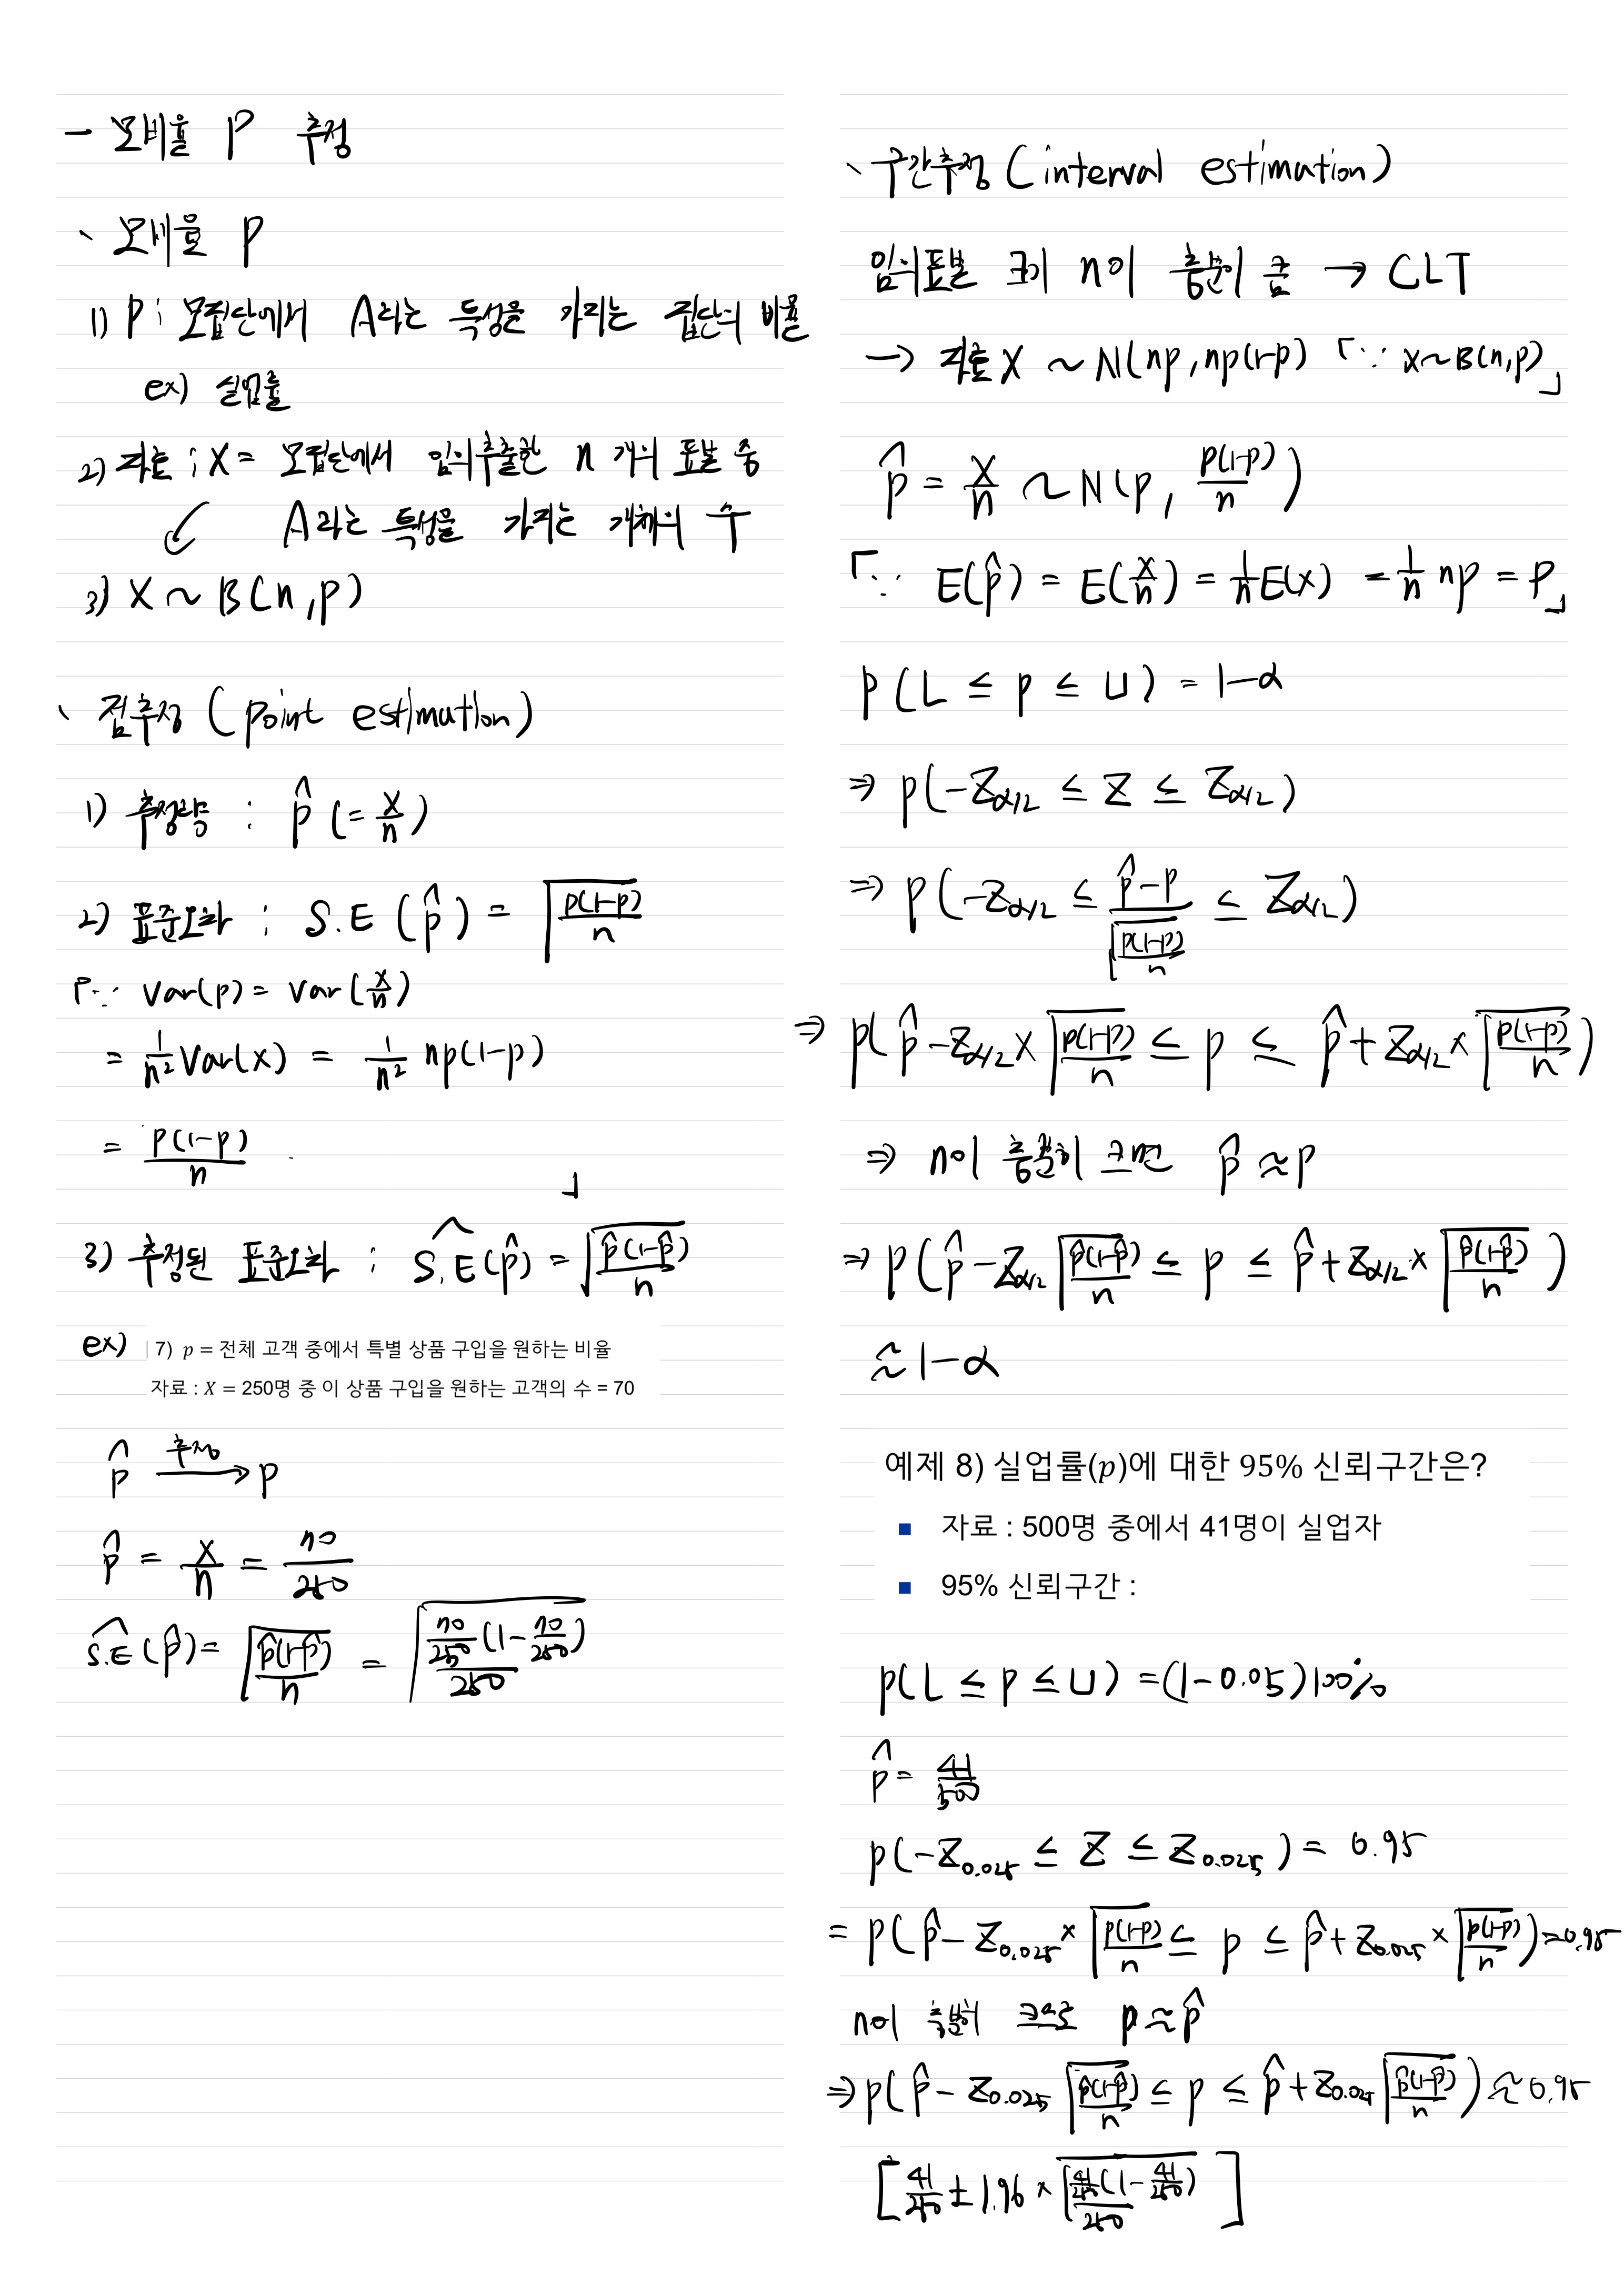 - 모비율 P 추정
、모비율 P
1) P : 모집단에서 A라는 특성을 가지는 집단의 비율
ex) 실업률
2) 자료 ; X = 모집단에서 임의추출한 n 개의 표본 중
A라는 특성을 가지는 개체의 수
3) X ~ B(n, p)
、점추정 (point estimation)
1) 추정량 : p̂ (= X/n)
2) 표준오차 ; S.E (p̂) = √(p(1-p)/n)
「∵ Var(p) = Var(X/n)
= 1/n² Var(X) = 1/n² np(1-p)
= p(1-p)/n 」
3) 추정된 표준오차 ; Ŝ.E(p̂) = √(p̂(1-p̂)/n)
ex) 7) p = 전체 고객 중에서 특별 상품 구입을 원하는 비율
자료 : X = 250명 중 이 상품 구입을 원하는 고객의 수 = 70
p̂ 추정→ p
p̂ = X/n = 70/250
Ŝ.E (p̂) = √(p̂(1-p̂)/n) = √(70/250 (1-70/250)/250)
、구간추정 (interval estimation)
임의표본 크기 n이 충분히 큼 → CLT
→ 자료 X ~ N(np, np(1-p)) 「∵ X~B(n,p)」
p̂ = X/n ~ N(p, p(1-p)/n)
「∵ E(p̂) = E(X/n) = 1/n E(X) = 1/n np = P」
P (L ≤ p ≤ U) = 1-α
⇒ P(-Zα/2 ≤ Z ≤ Zα/2)
⇒ P(-Zα/2 ≤ (p̂-p)/√(p(1-p)/n) ≤ Zα/2)
⇒ P(p̂-Zα/2 × √(p(1-p)/n) ≤ p ≤ p̂+Zα/2 × √(p(1-p)/n))
⇒ n이 충분히 크면 p̂ ≈ p
⇒ P(p̂-Zα/2 √(p̂(1-p̂)/n) ≤ p ≤ p̂+Zα/2 × √(p̂(1-p̂)/n))
≈ 1-α
예제 8) 실업률(p)에 대한 95% 신뢰구간은?
■ 자료 : 500명 중에서 41명이 실업자
■ 95% 신뢰구간 :
P(L ≤ p ≤ U) = (1-0.05)100%
p̂ = 41/500
P(-Z0.025 ≤ Z ≤ Z0.025) = 0.95
= P(p̂-Z0.025 × √(p(1-p)/n) ≤ p ≤ p̂+Z0.025 × √(p(1-p)/n)) = 0.95
n이 충분히 크므로 p ≈ p̂
⇒ P(p̂-Z0.025 √(p̂(1-p̂)/n) ≤ p ≤ p̂+Z0.025 √(p̂(1-p̂)/n)) ≈ 0.95
[41/250 ± 1.96 × √(41/250 (1-41/250)/250)]